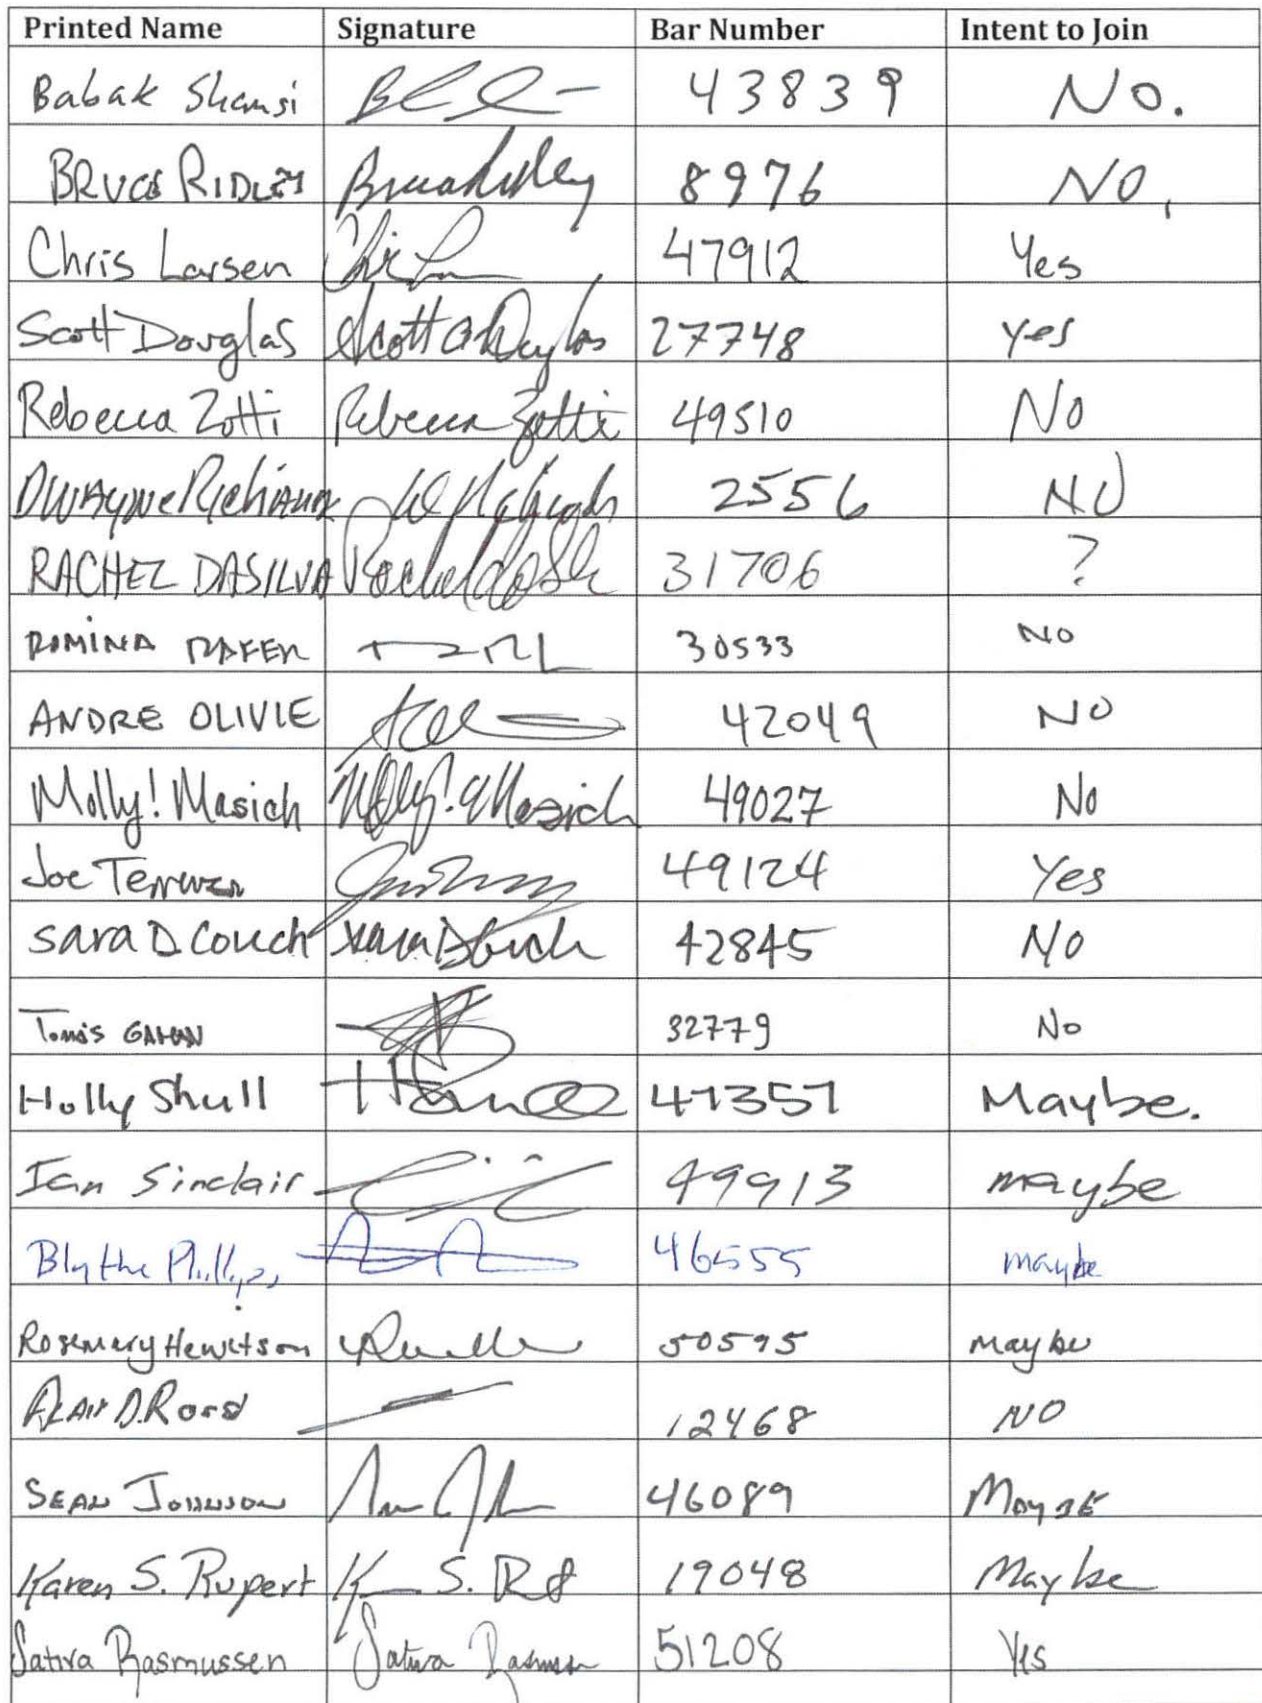 Printed Name Signature Bar Number Intent to Join
Babak Shamsi 43839 No.
BRUCE RIDLEY Bruce Ridley 8976 NO,
Chris Larsen 47912 Yes
Scott Douglas Scott Douglas 27748 yes
Rebecca Zotti Rebecca Zotti 49510 No
DWAYNE 2556 NO
RACHEL DASILVA Rachel daSilva 31706 ?
ROMINA RAFER 30533 NO
ANDRE OLIVIE 42049 NO
Molly! Masich Molly! Masich 49027 No
Joe Terrenzio 49124 Yes
Sara D Couch Sara D Couch 42845 NO
Tomás GAHAN 32779 No
Holly Shull 47357 Maybe.
Ian Sinclair 49913 maybe
Blythe Phillips 46555 maybe
Rosemary Hewitson 50595 Maybe
D. 12468 NO
SEAN JOHNSON 46089 MAYBE
Karen S. Rupert K S. R 19048 Maybe
Sativa Rasmussen Sativa Rasmussen 51208 Yes